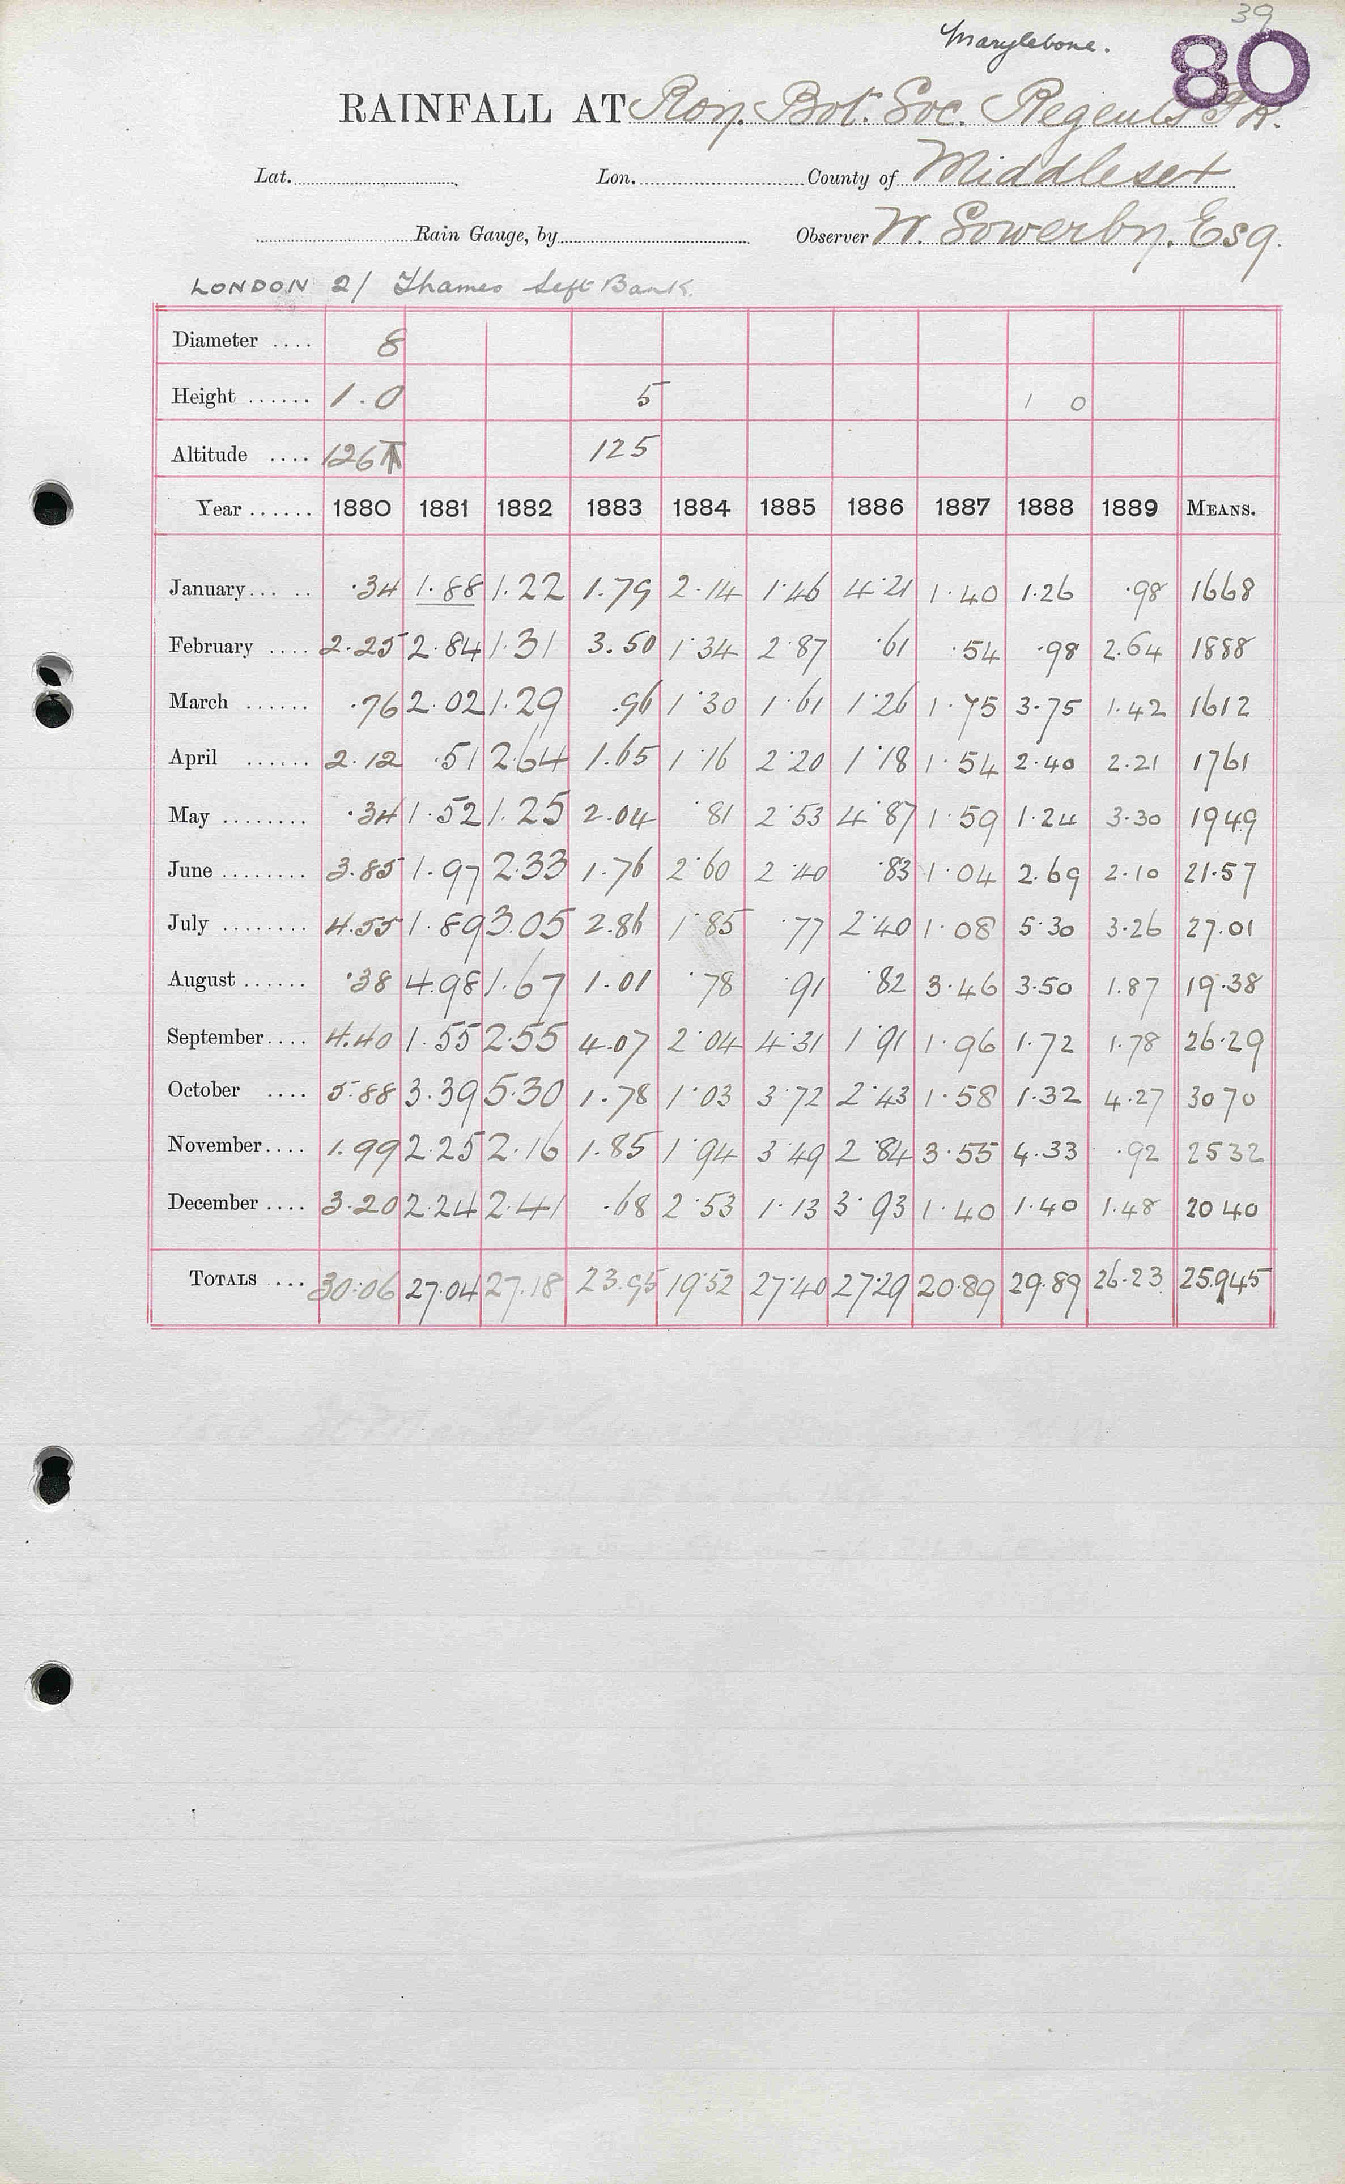 39
Marylebone.
80
RAINFALL AT Roy. Bot. Soc. Regents Pk.
Lat. Lon. County of Middlesex
Rain Gauge, by Observer W. Sowerby. Esq.
LONDON 2/ Thames Left Bank
Diameter .... 8
Height ...... 1.0 5 1 0
Altitude .... 126 T 125
Year ...... 1880 1881 1882 1883 1884 1885 1886 1887 1888 1889 MEANS.
January... .. .34 1.88 1.22 1.79 2.14 1.46 4.21 1.40 1.26 .98 1668
February .... 2.25 2.84 1.31 3.50 1.34 2.87 .61 .54 .98 2.64 1888
March ...... .76 2.02 1.29 .96 1.30 1.61 1.26 1.75 3.75 1.42 1612
April ...... 2.12 .51 2.64 1.65 1.16 2.20 1.18 1.54 2.40 2.21 1761
May ........ .34 1.52 1.25 2.04 .81 2.53 4.87 1.59 1.24 3.30 1949
June ........ 3.85 1.97 2.33 1.76 2.60 2.40 .83 1.04 2.69 2.10 21.57
July ........ 4.55 1.89 3.05 2.86 1.85 .77 2.40 1.08 5.30 3.26 27.01
August ...... .38 4.98 1.67 1.01 .78 .91 .82 3.46 3.50 1.87 19.38
September.... 4.40 1.55 2.55 4.07 2.04 4.31 1.91 1.96 1.72 1.78 26.29
October .... 5.88 3.39 5.30 1.78 1.03 3.72 2.43 1.58 1.32 4.27 3070
November.... 1.99 2.25 2.16 1.85 1.94 3.49 2.84 3.55 4.33 .92 2532
December .... 3.20 2.24 2.41 .68 2.53 1.13 3.93 1.40 1.40 1.48 2040
TOTALS ... 30.06 27.04 27.18 23.95 19.52 27.40 27.29 20.89 29.89 26.23 25.945